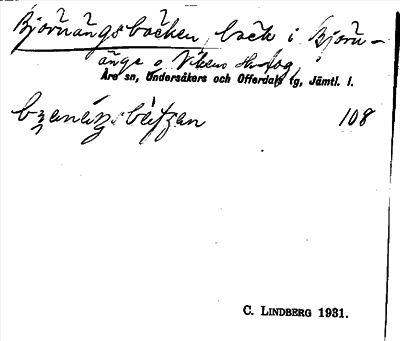 Björnängsbäcken, bäck i Björn-
änge o. Vikens
Åre sn, Undersåkers och Offerdals tg, Jämtl. l.
108
C. LINDBERG 1931.